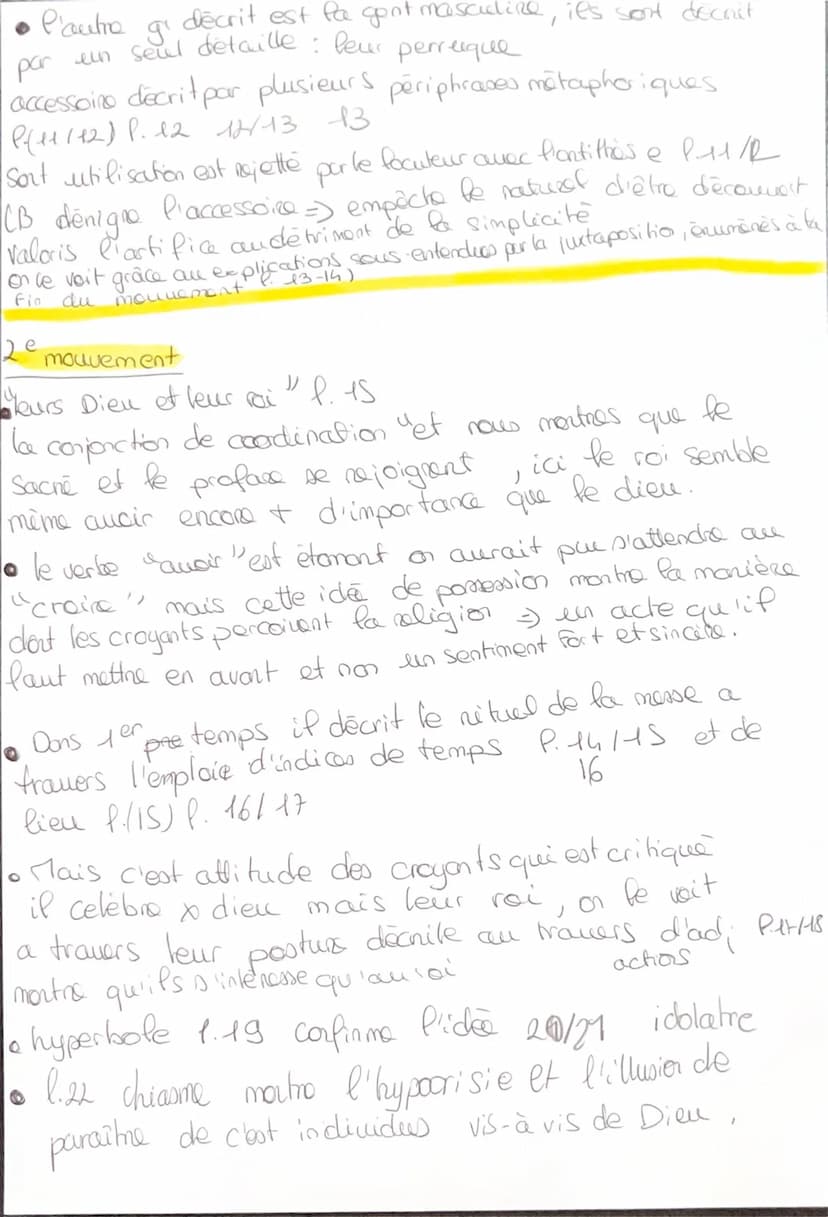 • l'autre g décrit est la gent masculine, ils sont décrit
par un seul détaille : leur perruque
accessoire décrit par plusieurs périphrases métaphoriques
P(11/12) P. 12 12/13 13
Sont utilisation est rejetté par le locuteur avec l'antithès e P.11/12
LB dénigre l'accessoire => empêche le naturel d'être découvert
valoris l'artifice au détriment de la simplicité
on ce voit grâce au explications sous-entendues par la juxtapositio, énumérés à la
fin du mouvement l. 13-14)
2e mouvement
"leurs Dieu et leur roi" l. 15
la conjonction de coordination "et nous montres que le
sacré et le profane se rejoignent , ici le roi semble
même avoir encore + d'importance que le dieu.
• le verbe "avoir" est étonant on aurait pu s'attendre au
"croire" mais cette idé de possession montre la manière
dont les croyants percoivent la religion => un acte qu'il
faut mettre en avant et non un sentiment fort et sincère.
• Dans 1er temps il décrit le rituel de la messe a
travers l'emploie d'indices de temps P. 14/15 et de
16
lieu P.(15) P. 16/17
• Mais c'est attitude des croyants qui est critiqué
il celèbre x dieu mais leur roi, on le voit
a travers leur posture décrite au travers d'adj P.17/18
actions
montre qu'ils s'intéresse qu'au roi
• hyperbole l.19 confirme l'idée 20/21 idolatre
• l.22 chiasme montre l'hypocrisie et l'illusion de
paraître de c'est individus vis-à vis de Dieu.